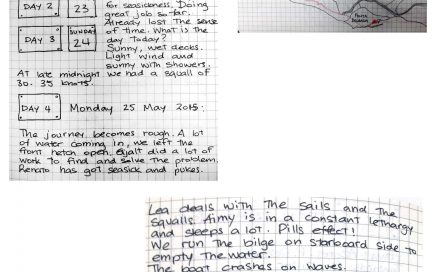 DAY 2
23
for seasickness. Doing
great job so far.
Already lost the sense
DAY 3
SUNDAY
24
of time. What is the
day today?
Sunny, wet decks.
Light wind and
sunny with showers.
AT late midnight we had a squall of
30-35 knots.
DAY 4
Monday 25 May 2015.
The journey becomes rough. A lot
of water coming in, we left the
front hetch open. Ejalt did a lot of
work to find and solve the problem.
Renato has got seasick and pukes.
Lea deals with the sails and the
squalls. Aimy is in a constant lethargy
and sleeps a lot. Pills effect!
We run the bilge on starboard side to
empty the water.
The boat crashes on waves.